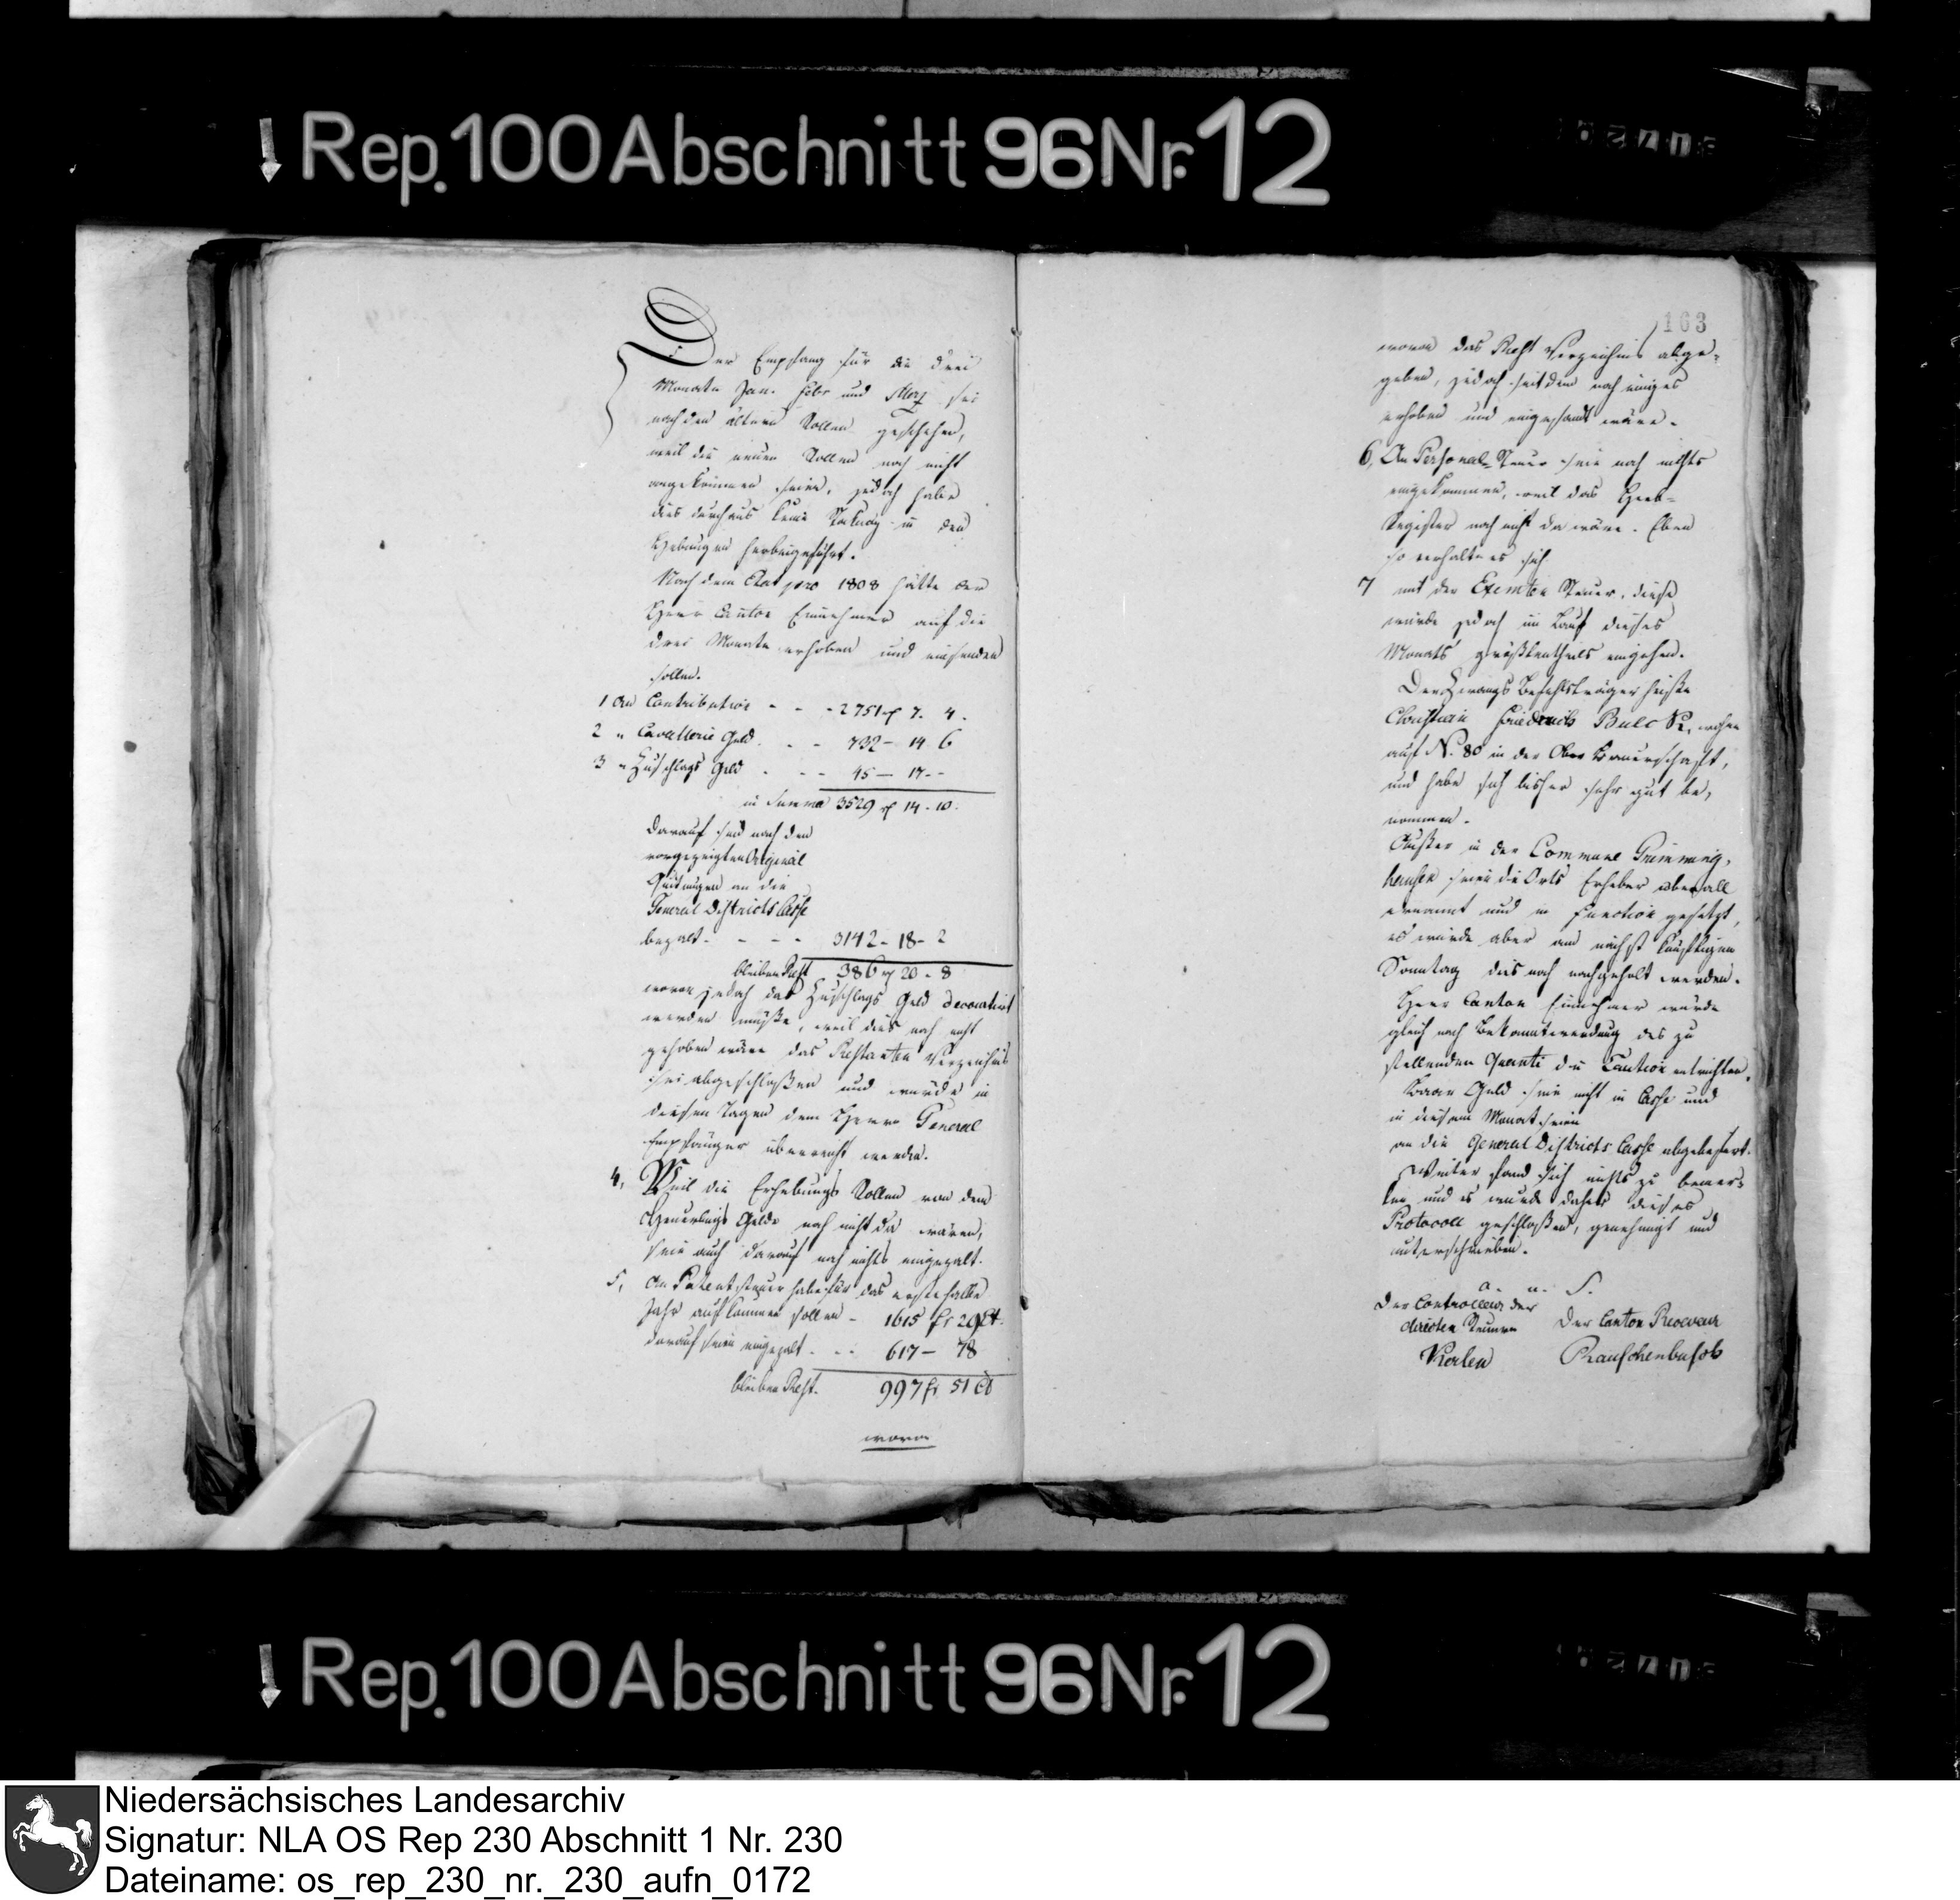 Rep. 100 Abschnitt 96 Nr. 12
Der Empfang für die drei
Monate Jan. Febr und Merz sei
nach den ältern Rollen geschehen,
weil die neuen Rollen noch nicht
angekommen seien, jedoch habe
dies durchaus keine in den
Hebungen herbeigeführt.
Nach dem Etat pro 1808 hätte der
Herr Canton Einnehmer auf die
drei Monate erhoben und einsenden
sollen.
1 An Contribution - - - 2751 rh 7. 4.
2 " Cavallerie Geld. - - 732 - 14 6
3 " Zuschlags Geld - - - 45 - 17 - -
in Summa 3529 rh 14 - 10.
Darauf sind nach den
vorgezeigten Original
Quitungen an die
General Districts Casse
bezalt. - - - 3142 - 18 - 2
bleiben Rest 386 rh 20 - 8
wovon jedoch das Zuschlags Geld decourtirt
werden müße, weil dies noch nicht
gehoben wäre das Restanten Verzeichnis
sei abgeschloßen und würde in
diesen Tagen dem Herrn General
Empfänger überreicht werden.
4, Weil die Erhebungs Rollen von dem
Heuerlings Gelde noch nicht da wären,
seie auch darauf noch nichts eingezalt.
5, An Patentsteuer habe für das erste halbe
Jahr aufkommen sollen - 1615 fr 29 Ct.
darauf seien eingezalt - - - 617 - 78
bleiben Rest. 997 fr 51 Ct
wovon
163
wovon das Rest Verzeichnis abge-
geben, jedoch seitdem noch einiges
erhoben und eingesandt wäre.
6, An Personal-Steuer seie noch nichts
eingekommen, weil das Heb-
Register noch nicht da wäre. Eben
so verhalte es sich
7 mit der Exemten Steuer, diese
würde jedoch im Lauf dieses
Monats größtentheils eingehen.
Der Zwangs Befehlsträger heiße
Christian Friedrich wohne
auf N. 80 in der Ober Bauerschaft,
und habe sich bisher sehr gut be-
nommen.
Außer in der Commune
seien die Orts Erheber überall
ernannt und in Function gesetzt,
es würde aber am nächst künftigen
Sonntag dies noch nachgeholt werden.
Herr Canton Einnehmer würde
gleich nach Bekanntwerdung des zu
stellenden Quanti die Caution entrichten.
Baar Geld seie nicht in Casse und
in diesem Monat seien
an die General Districts Casse abgeliefert.
Weiter fand sich nichts zu bemer-
ken und es wurde daher dieses
Protocoll geschloßen, genehmigt und
unterschrieben.
a. u. S.
Der Controlleur der
directen Steuern
Der Canton Receveur
Rauschenbusch
Rep. 100 Abschnitt 96 Nr. 12
Niedersächsisches Landesarchiv
Signatur: NLA OS Rep 230 Abschnitt 1 Nr. 230
Dateiname: os_rep_230_nr._230_aufn_0172